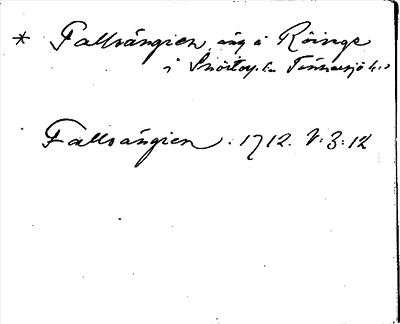 * Fallsängien, äng å Röinge
i Snöstorp sn Tönnersjö hd
Fallsängien. 1712. V:3:12